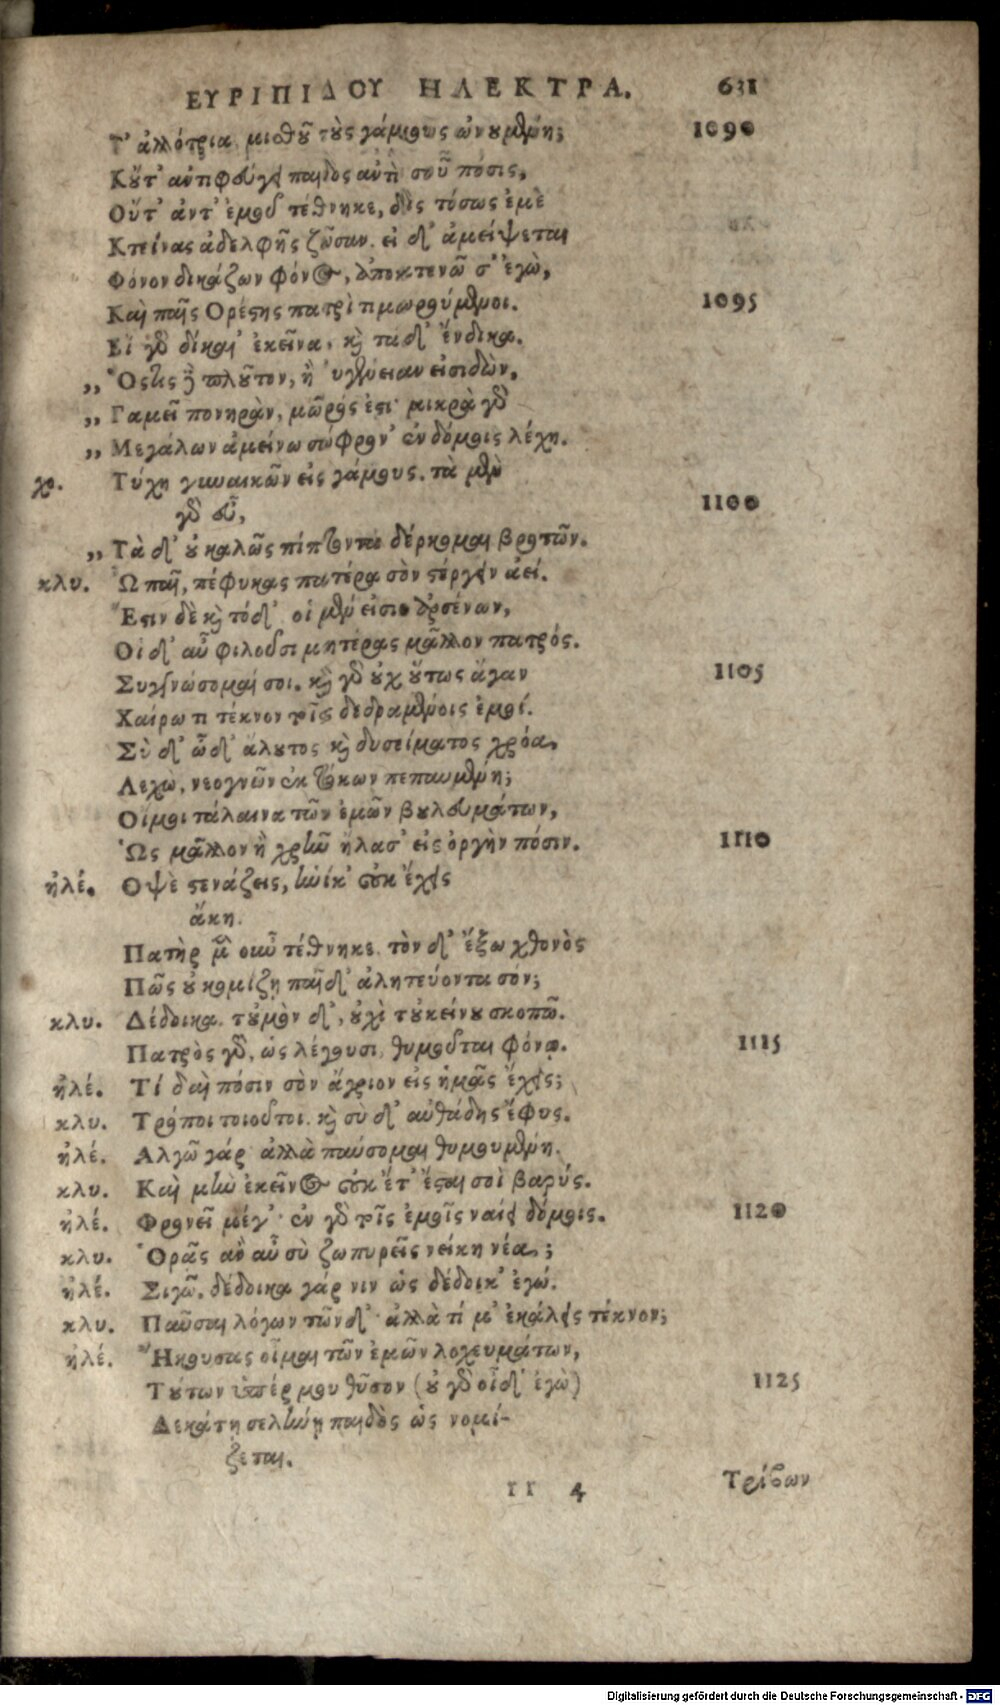 ΕΥΡΙΠΙΔΟΥ ΗΛΕΚΤΡΑ. 631
Τ' ἀλλότρια μισθοῦ τοὺς γάμους ὠνουμένη; 1090
Κοὔτ' ἀντιφεύγει παιδὸς ἀντὶ σοῦ πόσις,
Οὔτ' ἀντ' ἐμοῦ τέθνηκε, δὶς τόσως ἐμὲ
Κτείνας ἀδελφῆς ζῶσαν. εἰ δ' ἀμείψεται
Φόνον δικάζων φόνος, ἀποκτενῶ σ' ἐγὼ,
Καὶ παῖς Ορέστης πατρὶ τιμωρούμενοι. 1095
Εἰ γὰρ δίκαι' ἐκεῖνα, καὶ τάδ' ἔνδικα.
„ Ὅστις δὲ πλοῦτον, ἢ 'υγένειαν εἰσιδὼν,
„ Γαμεῖ πονηρὰν, μῶρός ἐστι· μικρὰ γὰρ
„ Μεγάλων ἀμείνω σώφρον' ἐν δόμοις λέχη.
χο. Τύχη γυναικῶν εἰς γάμους. τὰ μὲν
γὰρ εὖ, 1100
„ Τὰ δ' οὐ καλῶς πίπτοντα δέρκομαι βροτῶν.
κλυ. Ὦ παῖ, πέφυκας πατέρα σὸν στέργειν ἀεί.
Ἔστιν δὲ καὶ τόδ'. οἱ μέν εἰσιν ἀρσένων,
Οἱ δ' αὖ φιλοῦσι μητέρας μᾶλλον πατρός.
Συγγνώσομαί σοι. καὶ γὰρ οὐχ οὕτως ἄγαν 1105
Χαίρω τι τέκνον τοῖς δεδραμένοις ἐμοί.
Σὺ δ' ὧδ' ἄλουτος καὶ δυσείματος χρόα,
Λεχὼ, νεογνῶν ἐκ τόκων πεπαυμένη;
Οἴμοι τάλαινα τῶν ἐμῶν βουλευμάτων,
Ὡς μᾶλλον ἢ χρῆν ἤλασ' εἰς ὀργὴν πόσιν. 1110
ἠλέ. Οψὲ στενάζεις, ἡνίκ' οὐκ ἔχεις
ἄκη.
Πατὴρ μὲν οὖν τέθνηκε. τὸν δ' ἔξω χθονὸς
Πῶς οὐ κομίζῃ παῖδ' ἀλητεύοντα σόν;
κλυ. Δέδοικα. τοὐμὸν δ', οὐχὶ τοὐκείνου σκοπῶ.
Πατρὸς γὰρ, ὡς λέγουσι, θυμοῦται φόνῳ. 1115
ἠλέ. Τί δαὶ πόσιν σὸν ἄγριον εἰς ἡμᾶς ἔχεις;
κλυ. Τρόποι τοιοῦτοι. καὶ σὺ δ' αὐθάδης ἔφυς.
ἠλέ. Αλγῶ γάρ· ἀλλὰ παύσομαι θυμουμένη.
κλυ. Καὶ μὴν ἐκεῖνος οὐκ ἔτ' ἔσται σοὶ βαρύς.
ἠλέ. Φρονεῖ μέγ'· ἐν γὰρ τοῖς ἐμοῖς ναίει δόμοις. 1120
κλυ. Ὁρᾷς ἂν αὖ σὺ ζωπυρεῖς νείκη νέα;
ἠλέ. Σιγῶ. δέδοικα γάρ νιν ὡς δέδοικ' ἐγώ.
κλυ. Παῦσαι λόγων τῶνδ'· ἀλλὰ τί μ' ἐκάλεις τέκνον;
ἠλέ. Ἤκουσας οἶμαι τῶν ἐμῶν λοχευμάτων,
Τούτων ὑπέρ μου θῦσον (οὐ γὰρ οἶδ' ἐγὼ) 1125
Δεκάτῃ σελήνῃ παιδὸς ὡς νομί-
ζεται.
rr 4 Τρίβων
Digitalisierung gefördert durch die Deutsche Forschungsgemeinschaft - DFG